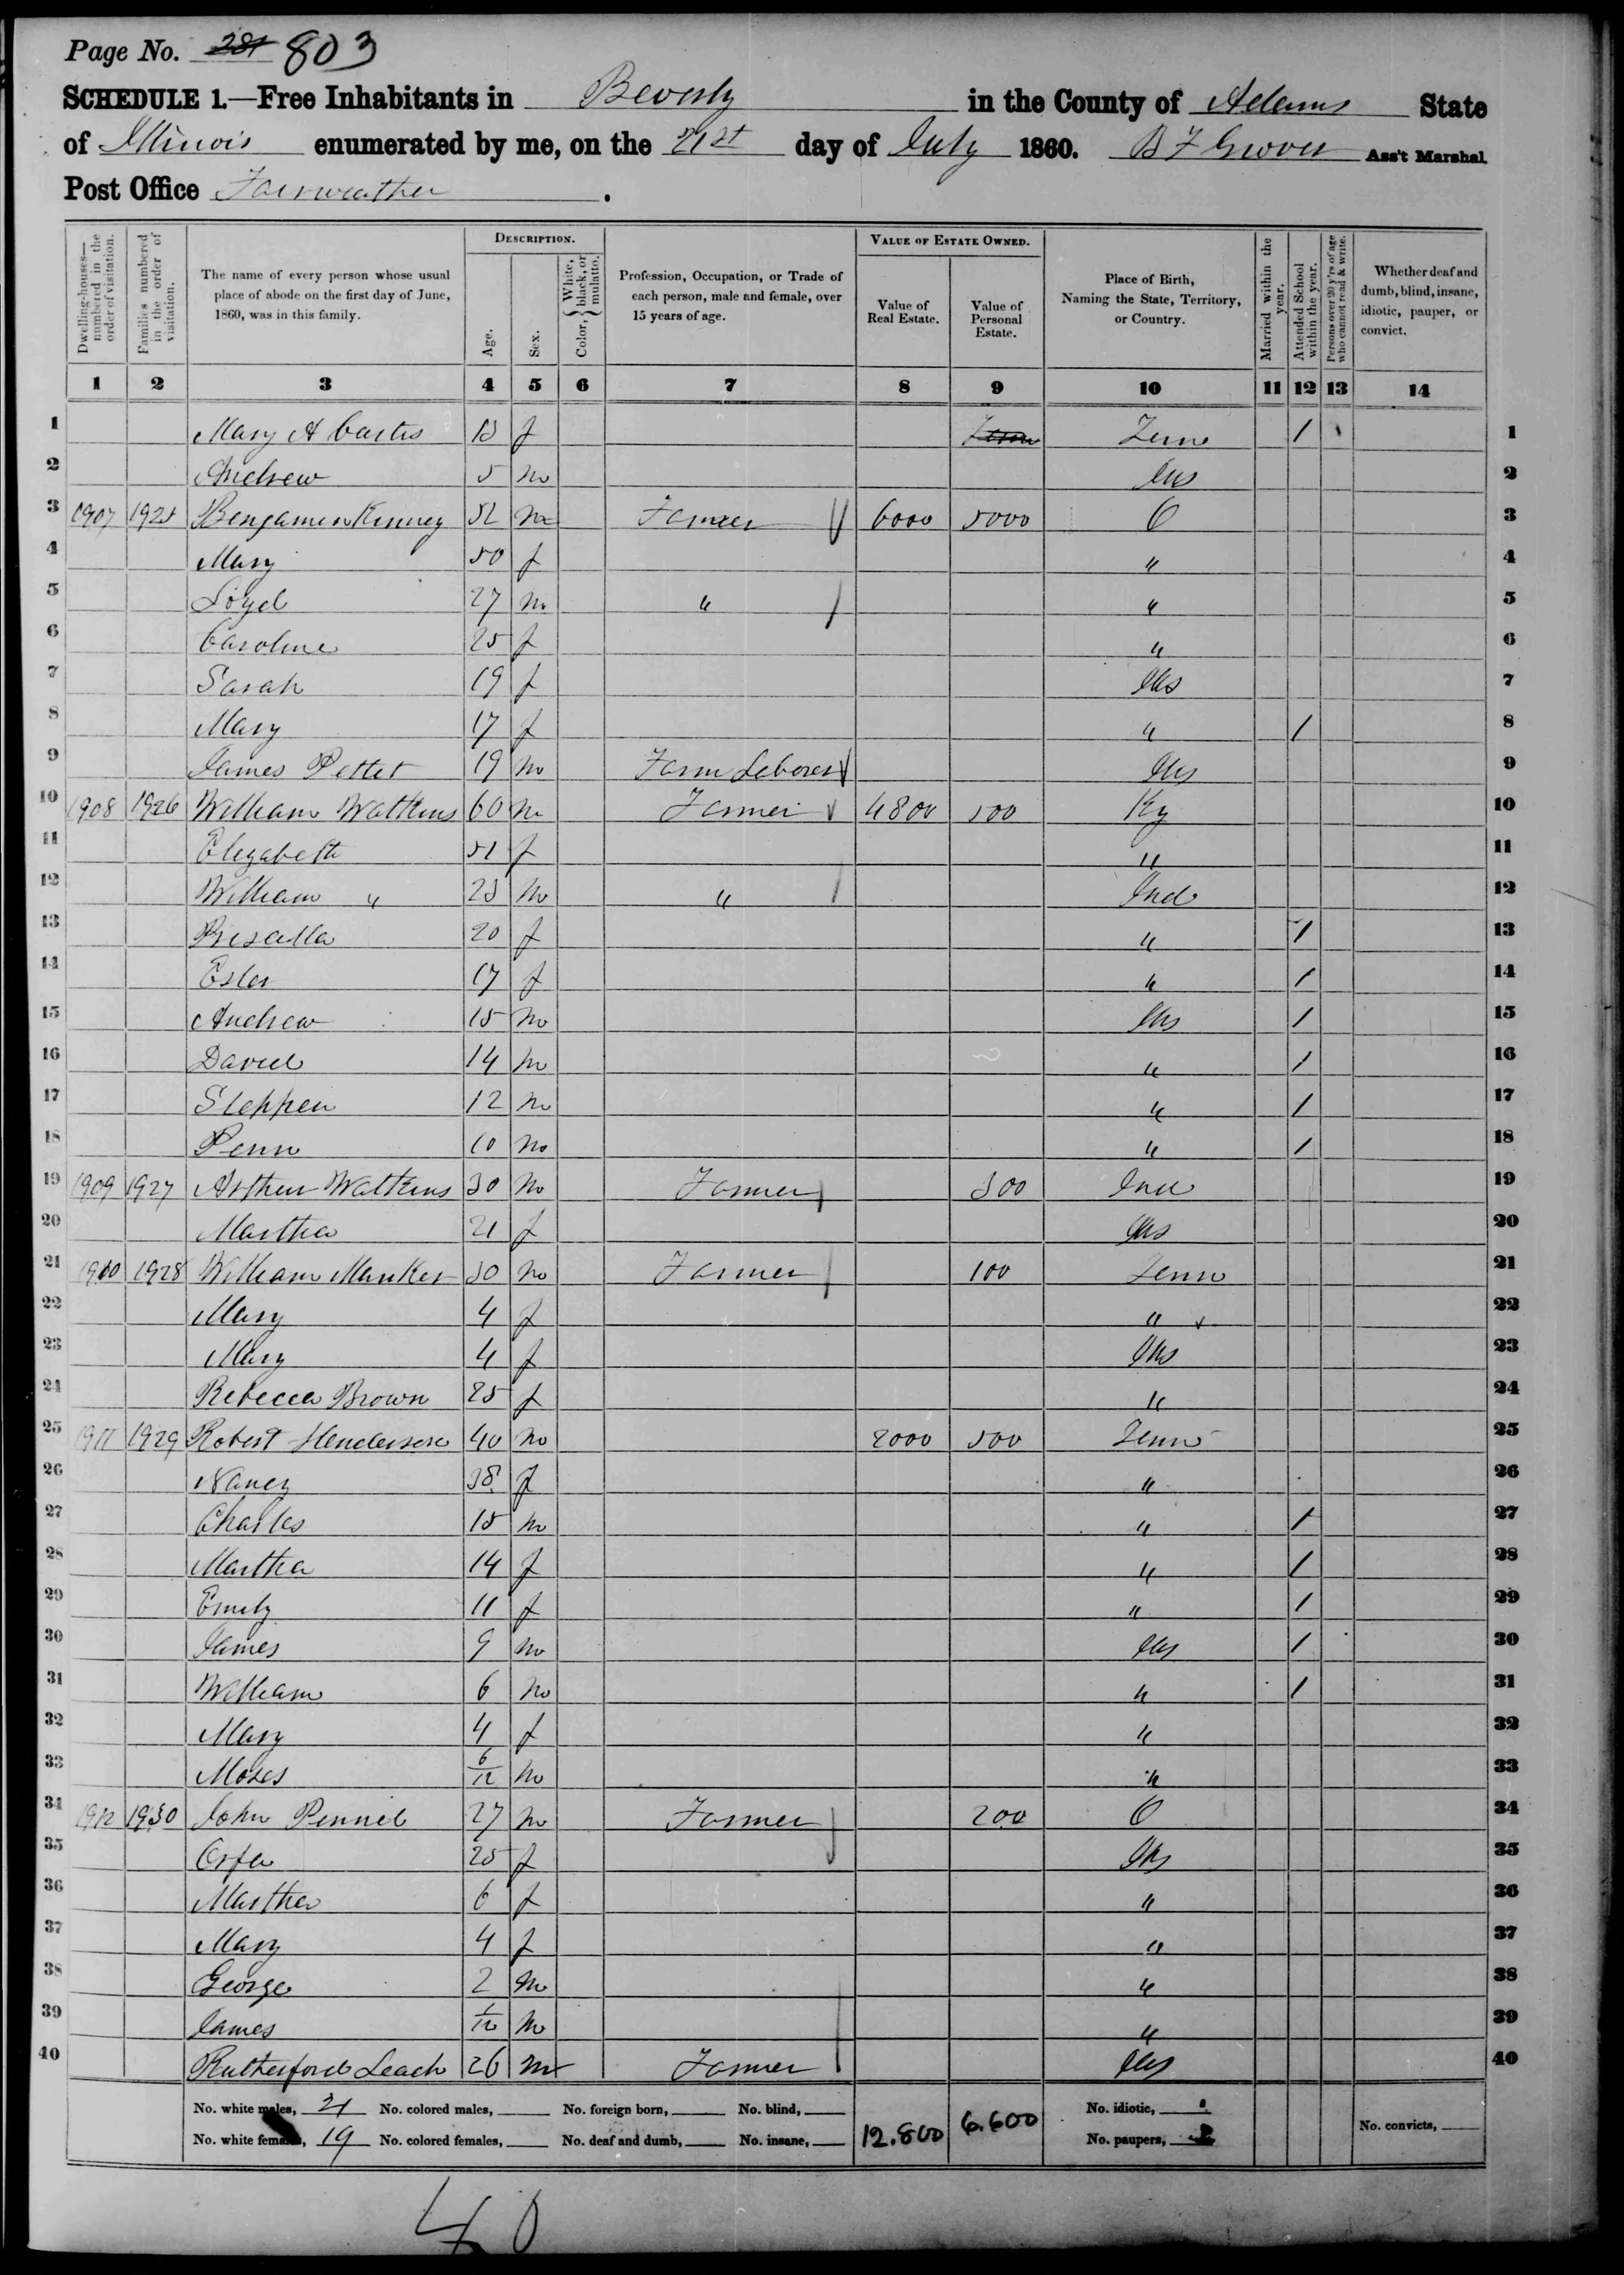 Page No. 281 803
SCHEDULE 1.—Free Inhabitants in Beverly in the County of Adams State
of Illinois enumerated by me, on the 21st day of July 1860. B F Grover Ass't Marshal.
Post Office Fairweather.
Dwelling-houses—numbered in the order of visitation.
Families numbered in the order of visitation.
The name of every person whose usual place of abode on the first day of June, 1860, was in this family.
DESCRIPTION.
Age.
Sex.
Color, White, black, or mulatto.
Profession, Occupation, or Trade of each person, male and female, over 15 years of age.
VALUE OF ESTATE OWNED.
Value of Real Estate.
Value of Personal Estate.
Place of Birth, Naming the State, Territory, or Country.
Married within the year.
Attended School within the year.
Persons over 20 y'rs of age who cannot read & write.
Whether deaf and dumb, blind, insane, idiotic, pauper, or convict.
1 2 3 4 5 6 7 8 9 10 11 12 13 14
1 Mary A Curtis 13 f Tenn Tenn / 1
2 Andrew 5 m Ills 2
3 1907 1925 Benjamin Kinney 52 m Farmer 6000 5000 O 3
4 Mary 50 f " 4
5 Loyd 27 m " " 5
6 Caroline 25 f " 6
7 Sarah 19 f Ills 7
8 Mary 17 f " / 8
9 James Pettet 19 m Farm Laborer Ills 9
10 1908 1926 William Watkins 60 m Farmer 4800 500 Ky 10
11 Elizabeth 51 f " 11
12 William " 23 m " Ind 12
13 Priscilla 20 f " / 13
14 Ester 17 f " / 14
15 Andrew 15 m Ills / 15
16 David 14 m " / 16
17 Stephen 12 m " / 17
18 Penn 10 m " / 18
19 1909 1927 Arthur Watkins 30 m Farmer 300 Ind 19
20 Martha 21 f Ills 20
21 1910 1928 William Manker 30 m Farmer 100 Tenn 21
22 Mary 4 f " 22
23 Mary 4 f Ills 23
24 Rebecca Brown 25 f " 24
25 1911 1929 Robert Henderson 40 m 2000 500 Tenn 25
26 Nancy 38 f " 26
27 Charles 15 m " / 27
28 Martha 14 f " / 28
29 Emily 11 f " / 29
30 James 9 m Ills / 30
31 William 6 m " / 31
32 Mary 4 f " 32
33 Moses 6/12 m " 33
34 1912 1930 John Pennel 27 m Farmer 200 O 34
35 Orfa 25 f Ills 35
36 Martha 6 f " 36
37 Mary 4 f " 37
38 George 2 m " 38
39 James 1/12 m " 39
40 Rutherford Leach 26 m Farmer Ills 40
No. white males, 21 No. colored males, No. foreign born, No. blind, No. idiotic,
No. white females, 19 No. colored females, No. deaf and dumb, No. insane, 12.800 6.600 No. paupers, No. convicts,
40